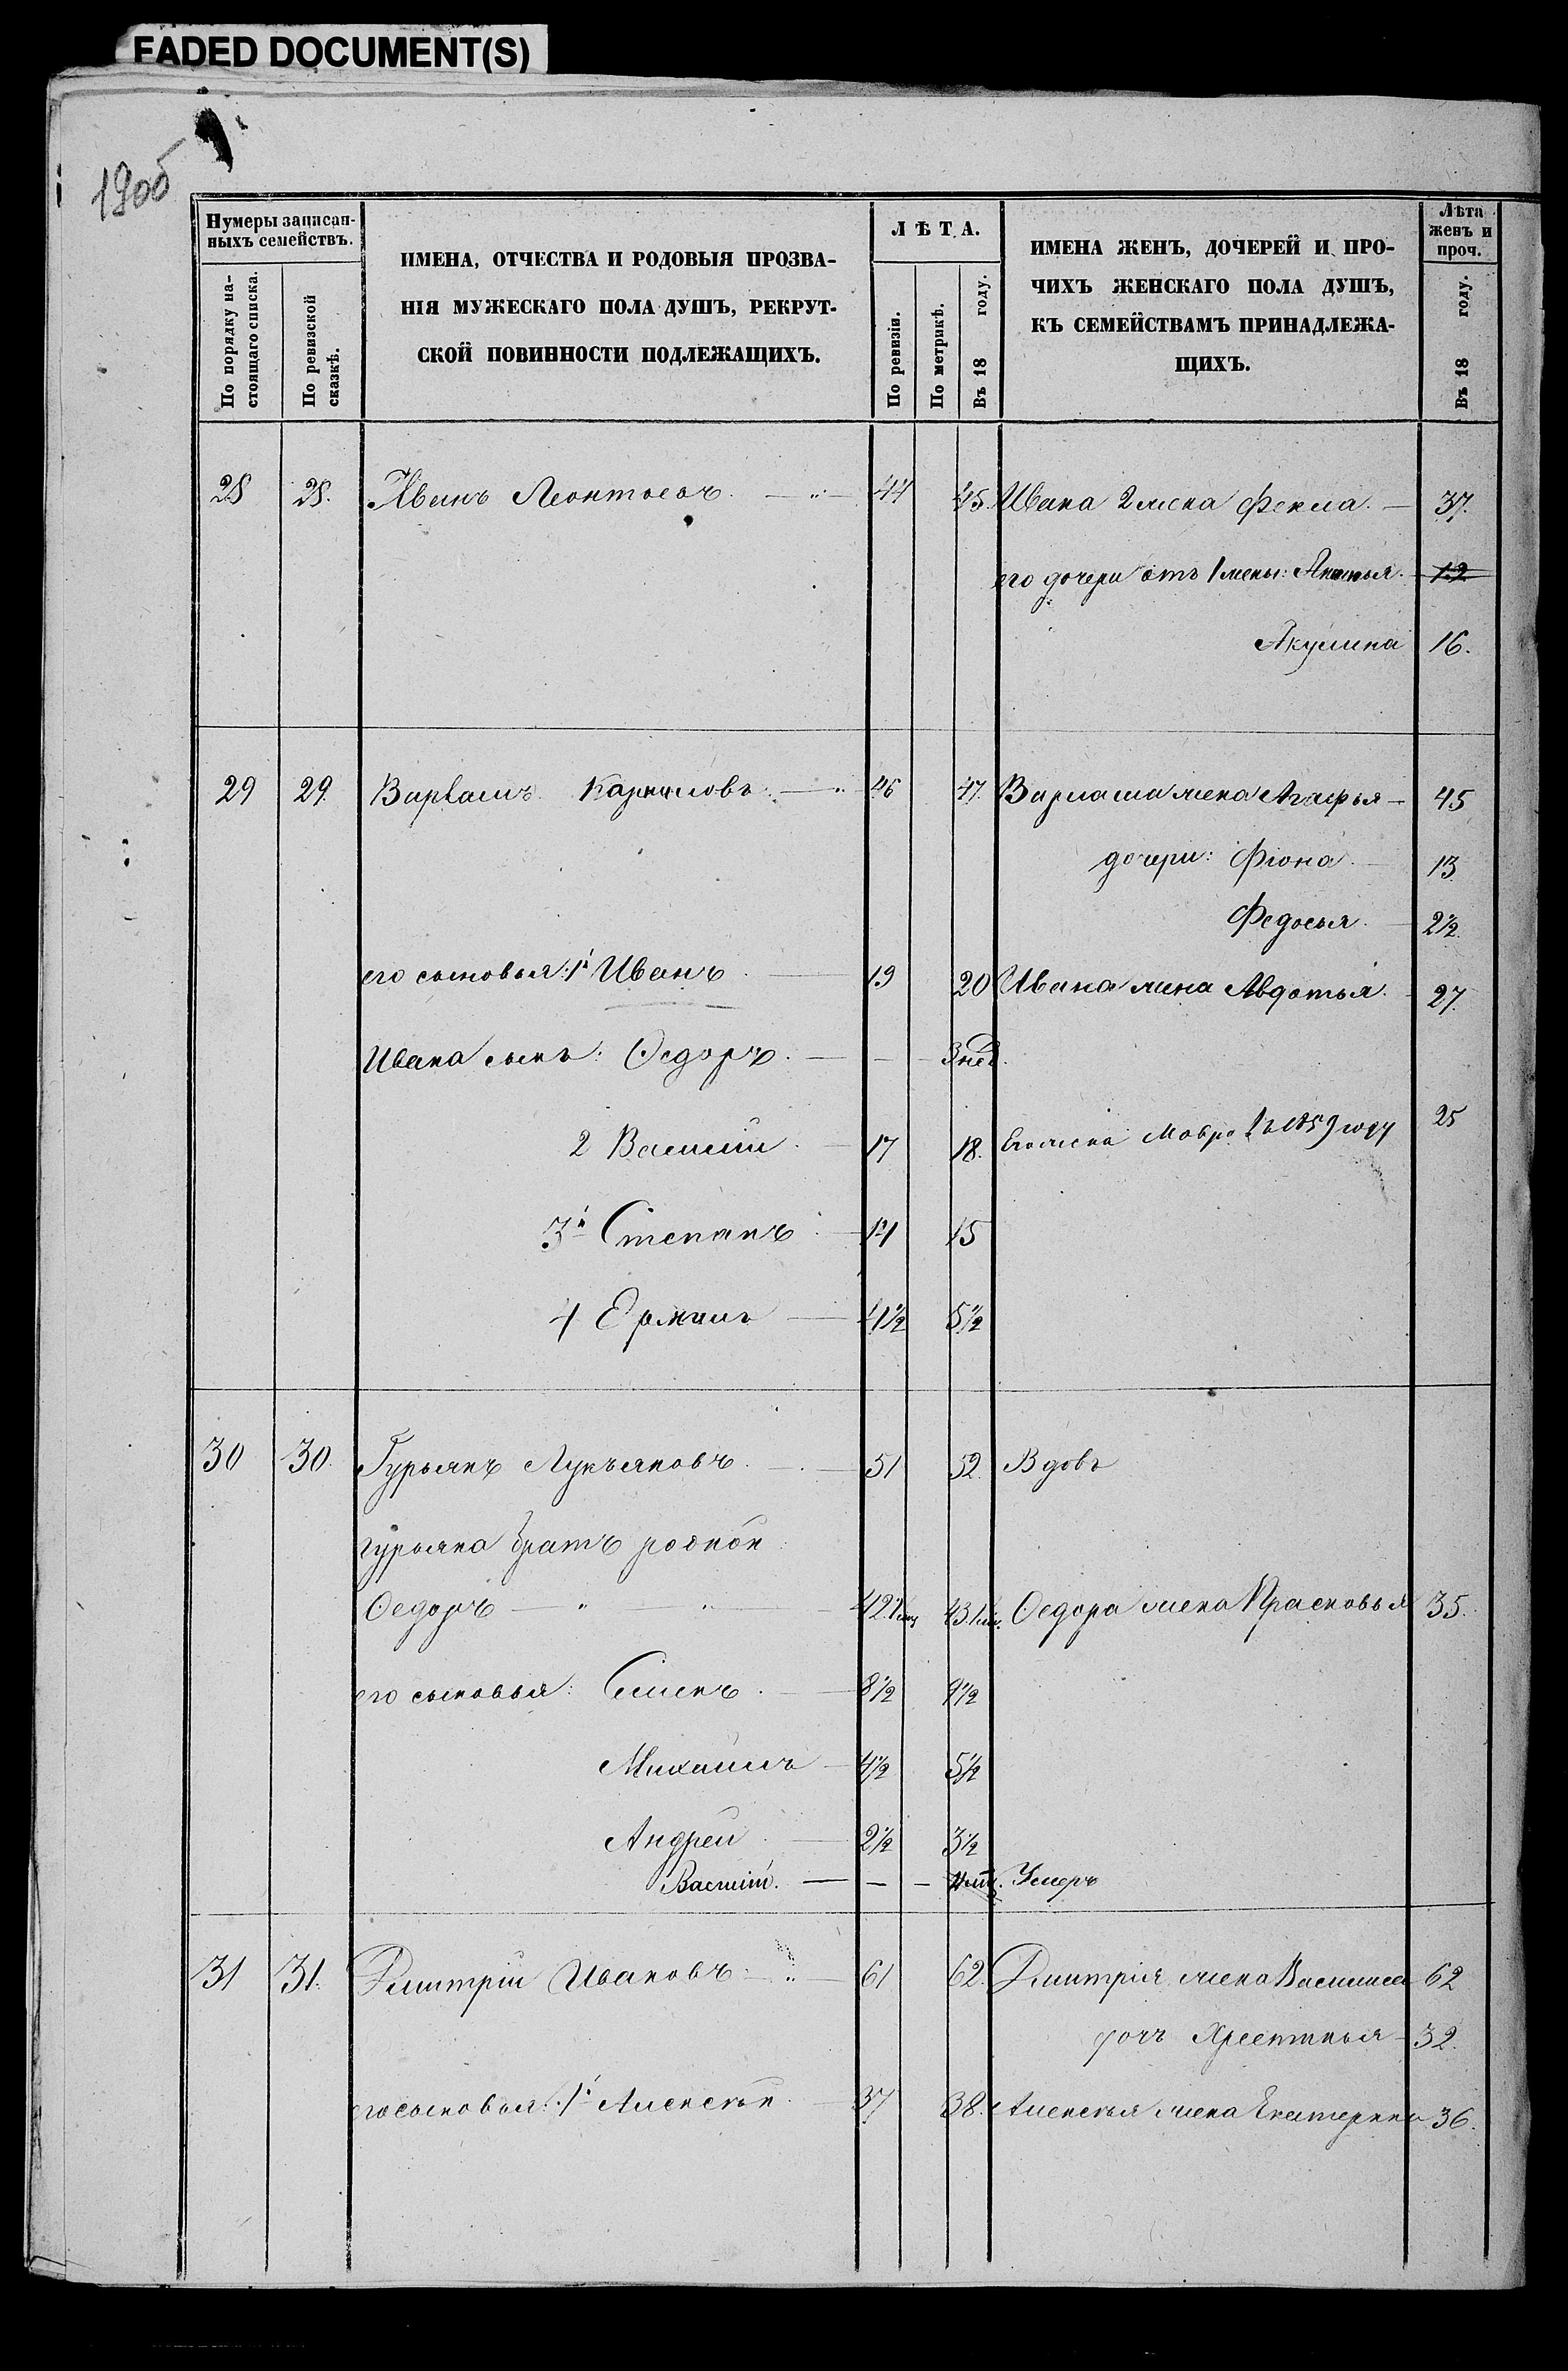 FADED DOCUMENT(S)
19об
Нумеры записан-
ныхъ семействъ.
По порядку на-
стоящаго списка.
По ревизской
сказкѣ.
ИМЕНА, ОТЧЕСТВА И РОДОВЫЯ ПРОЗВА-
НІЯ МУЖЕСКАГО ПОЛА ДУШЪ, РЕКРУТ-
СКОЙ ПОВИННОСТИ ПОДЛЕЖАЩИХЪ.
ЛѢТА.
По ревизіи.
По метрикѣ.
Въ 18 году.
ИМЕНА ЖЕНЪ, ДОЧЕРЕЙ И ПРО-
ЧИХЪ ЖЕНСКАГО ПОЛА ДУШЪ,
КЪ СЕМЕЙСТВАМЪ ПРИНАДЛЕЖА-
ЩИХЪ.
Лѣта
женъ и
проч.
Въ 18 году.
28 28. Иванъ Леонтьевъ. 44 45. Ивана 2 жена Фекла. 37.
его дочери отъ 1 жены: 12
Акулина 16.
29 29. Варламъ Карниловъ 46 47. Варлама жена Агафья 45
дочери: Фіона 13.
Федосья 2½.
его сыновья: 1й Иванъ 19 20 Ивана жена Авдотья 27.
Ивана сынъ: Ѳедоръ. — — 3 нед.
2 Василий 17 18. Его жена Мавра въ 1859 году 25
3й Степанъ 14 15
4 Ермилъ 4½ 5½
30 30. Гурьянъ Лукьяновъ. 51 52. Вдовъ
гурьяна братъ родной
Ѳедоръ — " — " — 42 43 Ѳедора жена Прасковья 35.
его сыновья: Семенъ 8½ 9½
Михаилъ 4½ 5½
Андрей 2½ 3½
Василій. — — — Умеръ
31 31. Дмитрій Ивановъ 61 62. Дмитрія жена Василиса 62
дочь 32.
его сыновья: 1й Алексѣй 37 38. Алексѣя жена Екатерина 36.